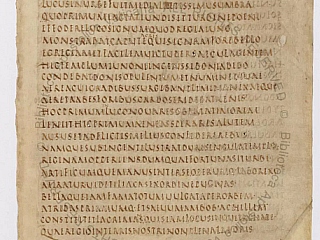 LUCUSINURBEFUITMEDIALAETISSIMUSUMBRA
QUOPRIMUMIACTATIUNDISETTURBINEPOENI
EFFODERELOCOSIGNUMQUODREGIAIUNO
MONSTRARATCAPUTACRISEQUISICNAMFOREBELLO
EGREGIAMETFACILEMVICTUPERSAECULAGENTEM
HICTEMPLUMIUNONIINGENSSIDONIADIDO
CONDEBATDONISOPULENTUMETNUMINEDIVAE
AEREACUIGRADIBUSSURGEBANTLIMINANIXAEQUE
AERETRABESFORIBUSCARDOSTRIDEBATAENIS
HOCPRIMUMINLUCONOVARESOBLATATIMOREM
LENIITHICPRIMUMAENEASSPERARESALUTEM
AUSUSETADFLICTISMELIUSCONFIDEREREBUS
NAMQUESUBINGENTILUSTRATDUMSINGULATEMPLO
REGINAMOPPERIENSDUMQUAEFORTUNASITURBI
ARTIFICUMQUEMANUSINTERSEOPERUMQUELABOREM
MIRATURVIDETILIACASEXORDINEPUGNAS
BELLAQUEIAMFAMATOTUMVULGATAPERORBEM
ATRIDASPRIAMUMQUEETSAEVUMAMBOBUSACHILLEM
CONSTITITETLACRIMANSQUISIAMLOCUSINQUITACHATE
QUAEREGIOINTERRISNOSTRINONPLENALABORIS